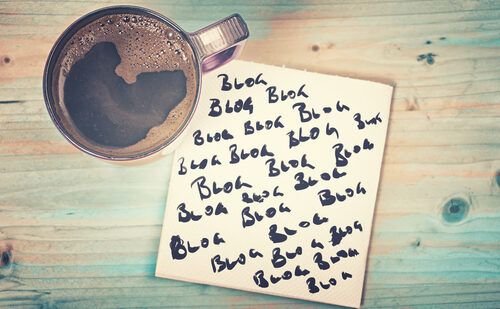 BLOG
BLOG BLOG BLOG
BLOG BLOG BLOG BLOG
BLOG BLOG BLOG BLOG
BLOG BLOG BLOG
BLOG BLOG BLOG
BLOG BLOG BLOG
BLOG BLOG BLOG
BLOG BLOG